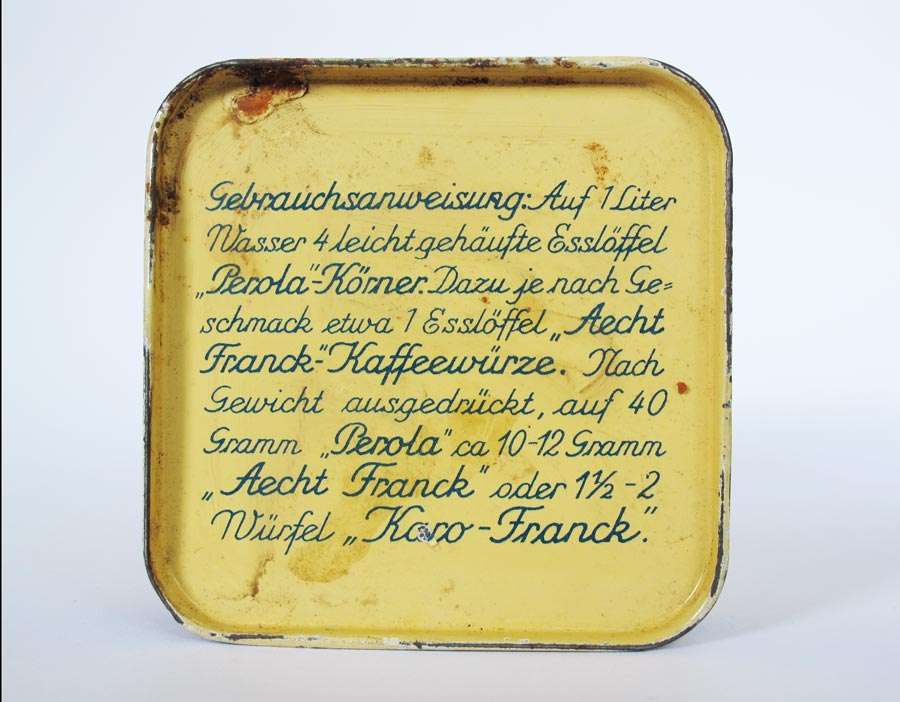 Gebrauchsanweisung: Auf 1 Liter
Wasser 4 leicht gehäufte Esslöffel
„Perola"-Körner. Dazu je nach Ge=
schmack etwa 1 Esslöffel „Aecht
Franck-"Kaffeewürze. Nach
Gewicht ausgedrückt, auf 40
Gramm „Perola" ca 10-12 Gramm
„Aecht Franck" oder 1½-2
Würfel „Karo-Franck".